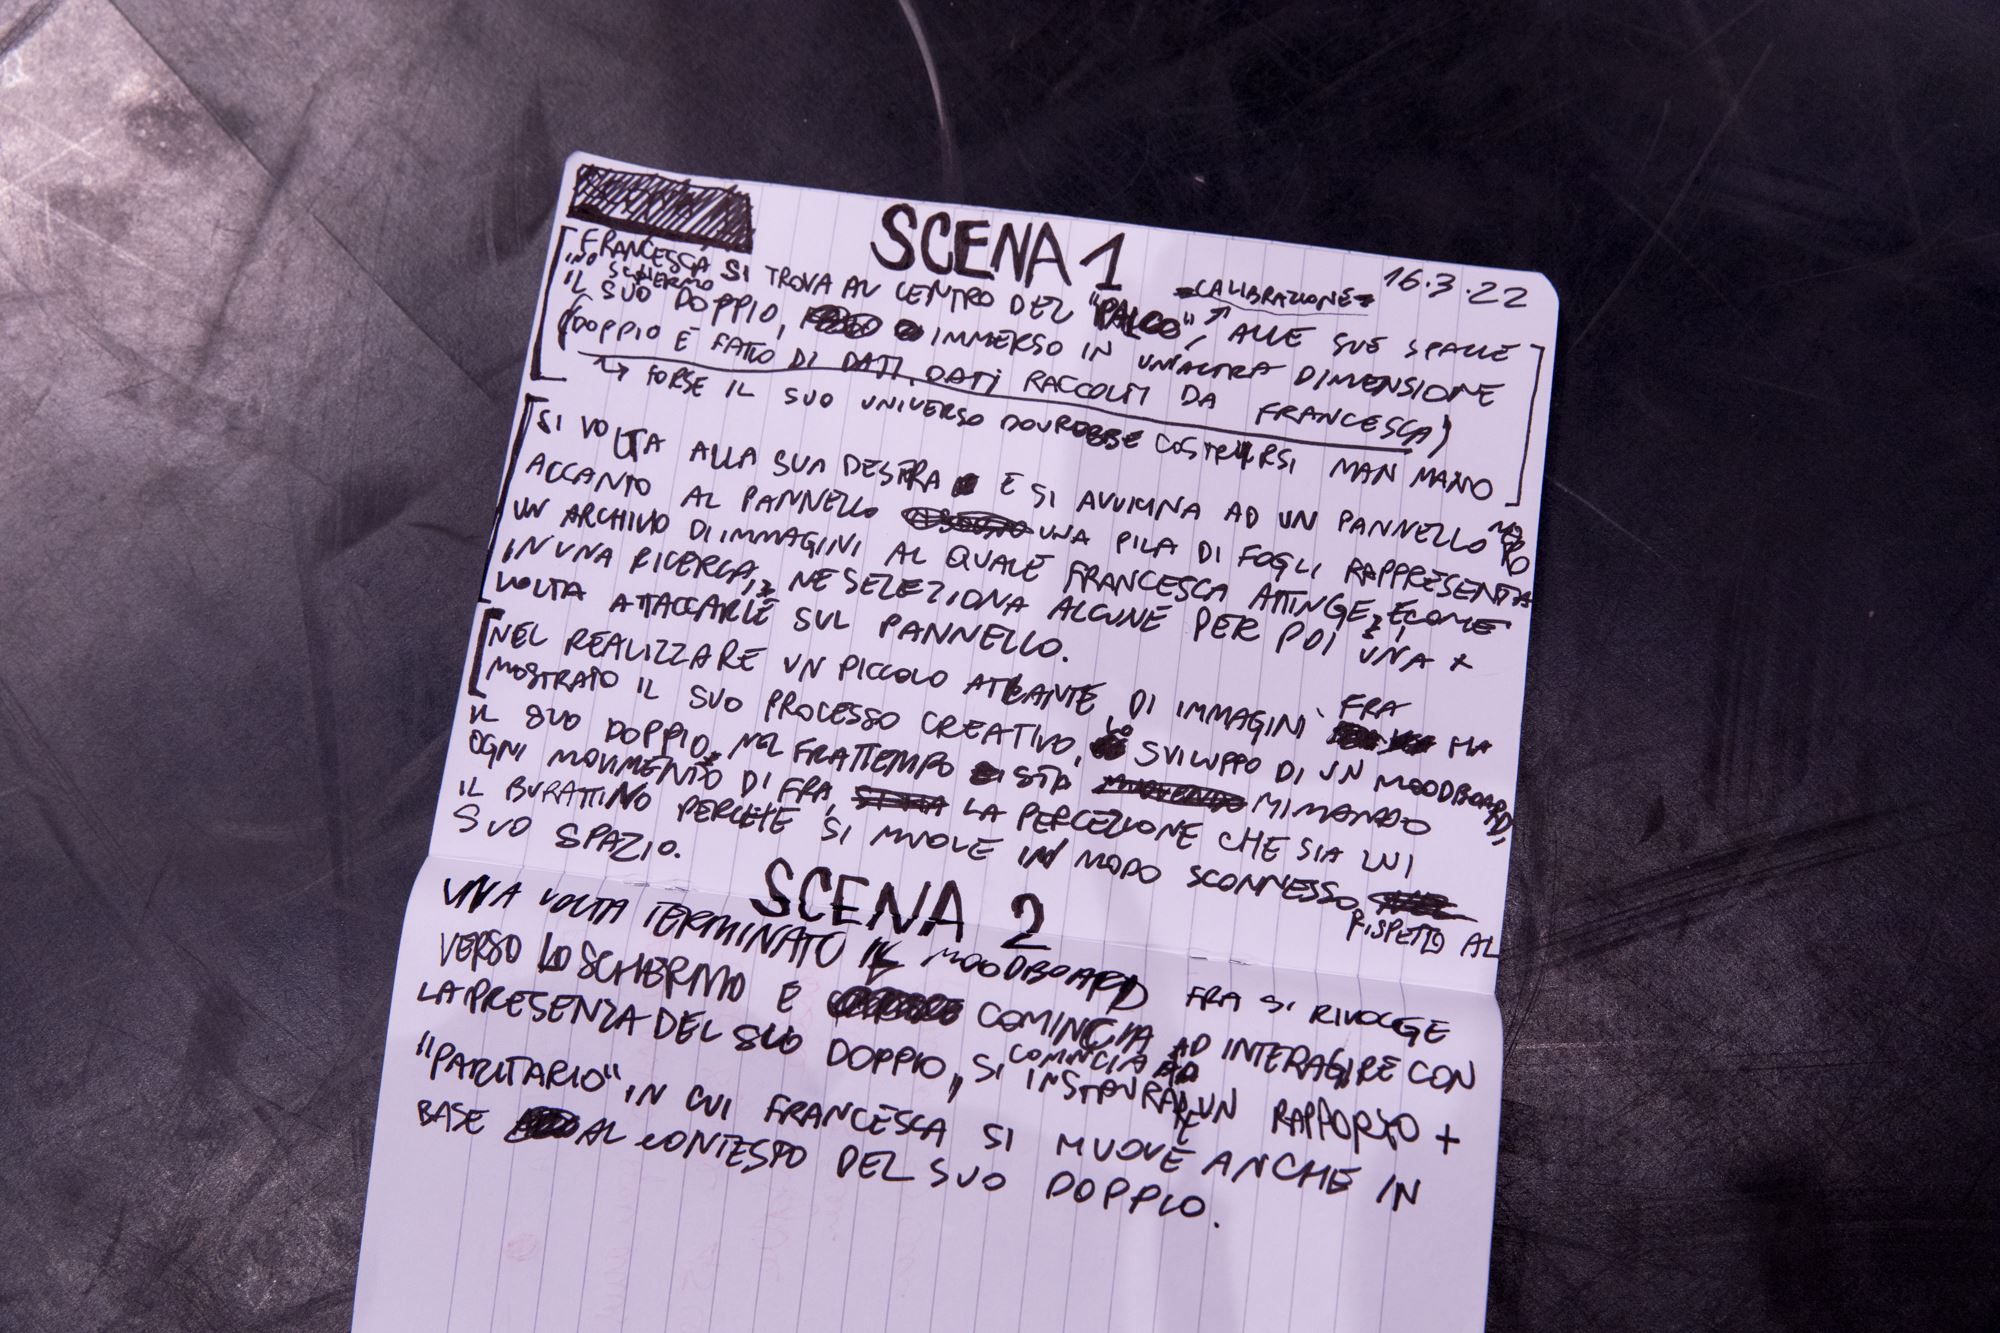 SCENA 1
16.3.22
=CALIBRAZIONE=
FRANCESCA SI TROVA AL CENTRO DEL "PALCO", ALLE SUE SPALLE
SCHERMO
IL SUO DOPPIO, IMMERSO IN UN'ALTRA DIMENSIONE
(DOPPIO È FATTO DI DATI, DATI RACCOLTI DA FRANCESCA)
↳ FORSE IL SUO UNIVERSO DOVREBBE COSTRUIRSI MAN MANO
SI VOLTA ALLA SUA DESTRA E SI AVVICINA AD UN PANNELLO NERO
ACCANTO AL PANNELLO UNA PILA DI FOGLI RAPPRESENTA
UN ARCHIVIO DI IMMAGINI AL QUALE FRANCESCA ATTINGE, E COME
IN UNA RICERCA, NE SELEZIONA ALCUNE PER POI UNA X
VOLTA ATTACCARLE SUL PANNELLO.
NEL REALIZZARE UN PICCOLO ATLANTE DI IMMAGINI FRA HA
MOSTRATO IL SUO PROCESSO CREATIVO, LO SVILUPPO DI UN MOODBOARD,
IL SUO DOPPIO, NEL FRATTEMPO STA MIMANDO
OGNI MOVIMENTO DI FRA, LA PERCEZIONE CHE SIA LUI
IL BURATTINO PERCHÈ SI MUOVE IN MODO SCONNESSO RISPETTO AL
SUO SPAZIO.
SCENA 2
UNA VOLTA TERMINATO IL MOODBOARD FRA SI RIVOLGE
VERSO LO SCHERMO E COMINCIA AD INTERAGIRE CON
LA PRESENZA DEL SUO DOPPIO, SI COMINCIA INSTAURARE UN RAPPORTO +
"PARITARIO" IN CUI FRANCESCA SI MUOVE ANCHE IN
BASE AL CONTESTO DEL SUO DOPPIO.